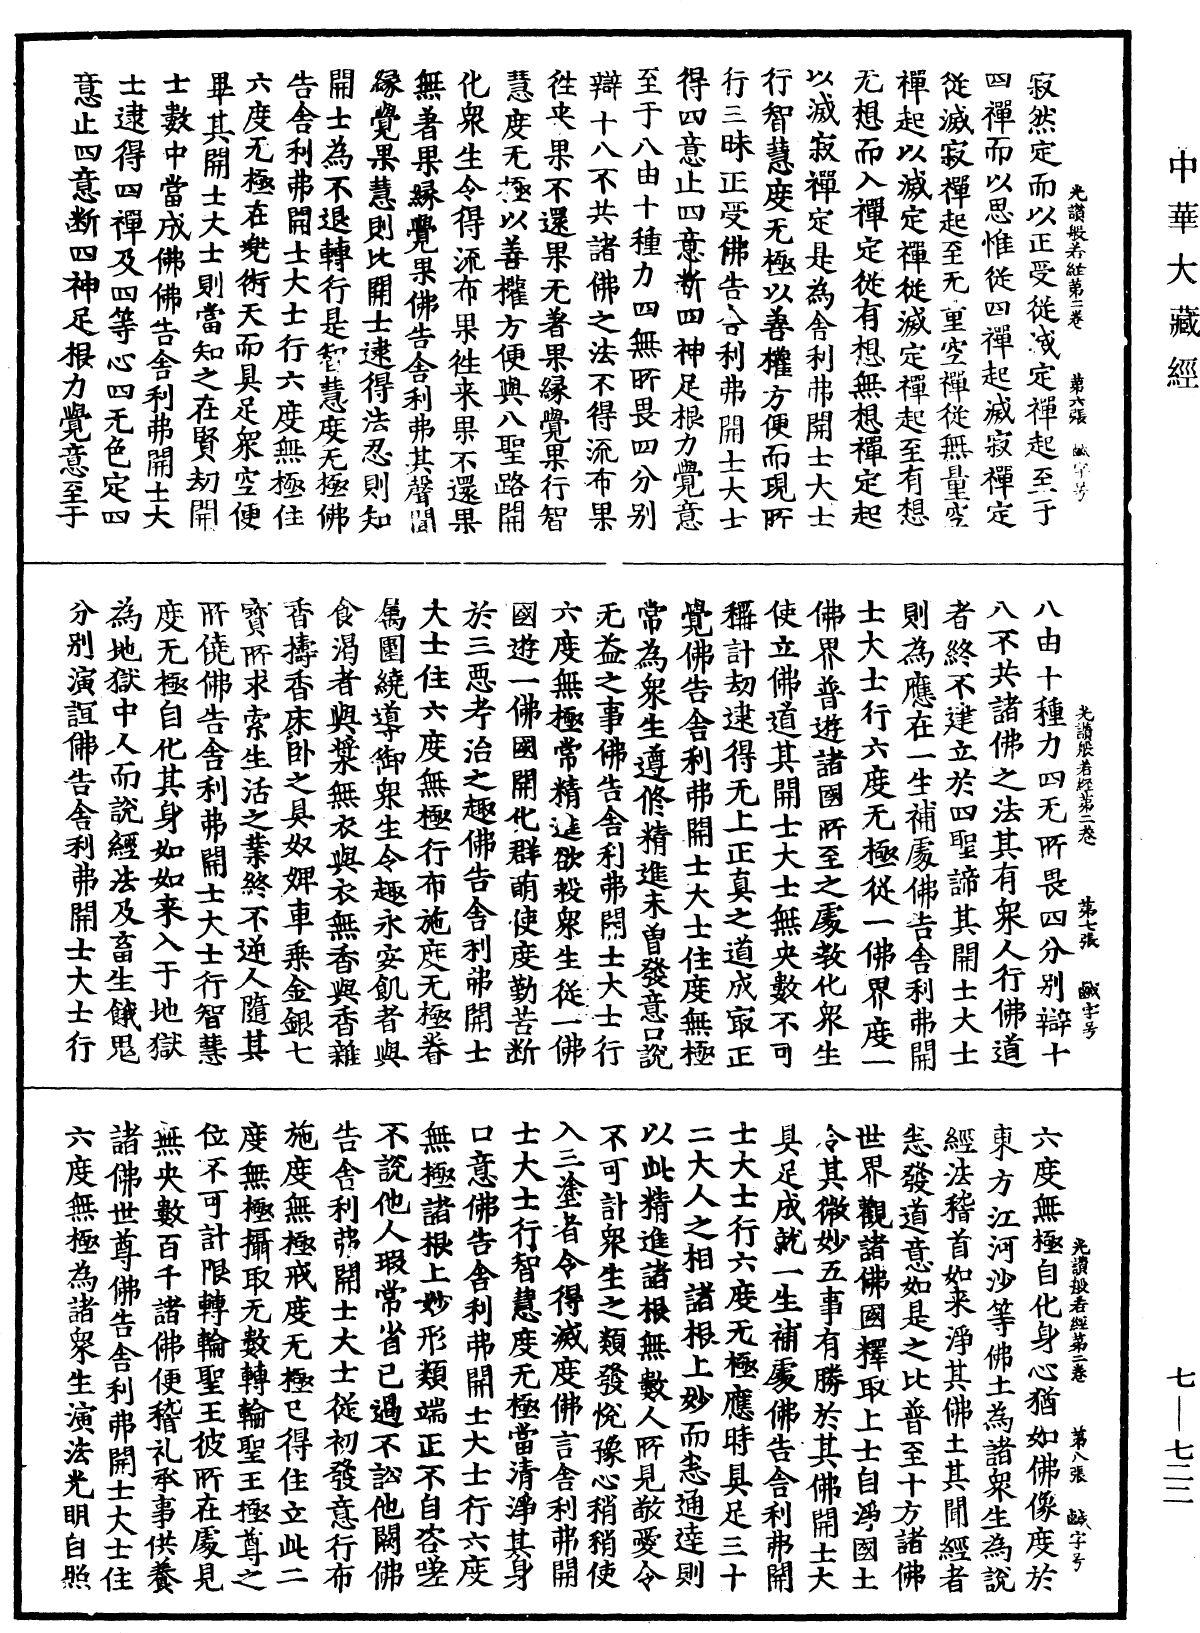 中華大藏經
光讚般若經第二卷 第六張 鹹字号
寂然定而以正受從滅定禪起至于
四禪而以思惟從四禪起滅寂禪定
從滅寂禪起至无量空禪從無量空
禪起以滅定禪從滅定禪起至有想
无想而入禪定從有想無想禪定起
以滅寂禪定是為舍利弗開士大士
行智慧度无極以善權方便而現所
行三昧正受佛告舍利弗開士大士
得四意止四意断四神足根力覺意
至于八由十種力四無所畏四分別
辯十八不共諸佛之法不得流布果
徃来果不還果无著果縁覺果行智
慧度无極以善權方便與八聖路開
化衆生令得流布果徃来果不還果
無著果縁覺果佛告舍利弗其聲聞
縁覺果慧則比開士逮得法忍則知
開士為不退轉行是智慧度无極佛
告舍利弗開士大士行六度無極住
六度无極在兜術天而具足衆空便
畢其開士大士則當知之在賢劫開
士數中當成佛佛告舍利弗開士大
士逮得四禪及四等心四无色定四
意止四意断四神足根力覺意至于
光讚般若經第二卷 第七張 鹹字号
八由十種力四无所畏四分別辯十
八不共諸佛之法其有衆人行佛道
者終不建立於四聖諦其開士大士
則為應在一生補處佛告舍利弗開
士大士行六度无極從一佛界度一
佛界普遊諸國所至之處教化衆生
使立佛道其開士大士無央數不可
稱計劫逮得无上正真之道成㝡正
覺佛告舍利弗開士大士住度無極
常為衆生遵修精進未曽發意口說
无益之事佛告舍利弗開士大士行
六度無極常精進欲救衆生從一佛
國遊一佛國開化群萌使度勤苦断
於三惡考治之趣佛告舍利弗開士
大士住六度無極行布施度无極眷
屬圍繞導御衆生令趣永安飢者與
食渴者與漿無衣與衣無香與香雜
香擣香床卧之具奴婢車乗金銀七
寳所求索生活之業終不逆人隨其
所僥佛告舍利弗開士大士行智慧
度无極自化其身如如来入于地獄
為地獄中人而說經法及畜生餓鬼
分別演誼佛告舍利弗開士大士行
光讚般若經第二卷 第八張 鹹字号
六度無極自化身心猶如佛像度於
東方江河沙等佛土為諸衆生為說
經法稽首如来淨其佛土其聞經者
悉發道意如是之比普至十方諸佛
世界觀諸佛國擇取上士自淨國土
令其微妙五事有勝於其佛開士大
具足成就一生補處佛告舍利弗開
士大士行六度无極應時具足三十
二大人之相諸根上妙而悉通達則
以此精進諸根無數人所見敬愛令
不可計衆生之類發悅豫心稍稍使
入三塗者令得滅度佛言舍利弗開
士大士行智慧度无極當清淨其身
口意佛告舍利弗開士大士行六度
無極諸根上妙形類端正不自咨嗟
不說他人瑕常省已過不訟他闕佛
告舍利弗開士大士從初發意行布
施度無極戒度无極已得住立此二
度無極攝取无數轉輪聖王極尊之
位不可計限轉輪聖王彼所在處見
無央數百千諸佛便稽礼承事供養
諸佛世尊佛告舍利弗開士大士住
六度無極為諸衆生演法光明自照
七—七二二